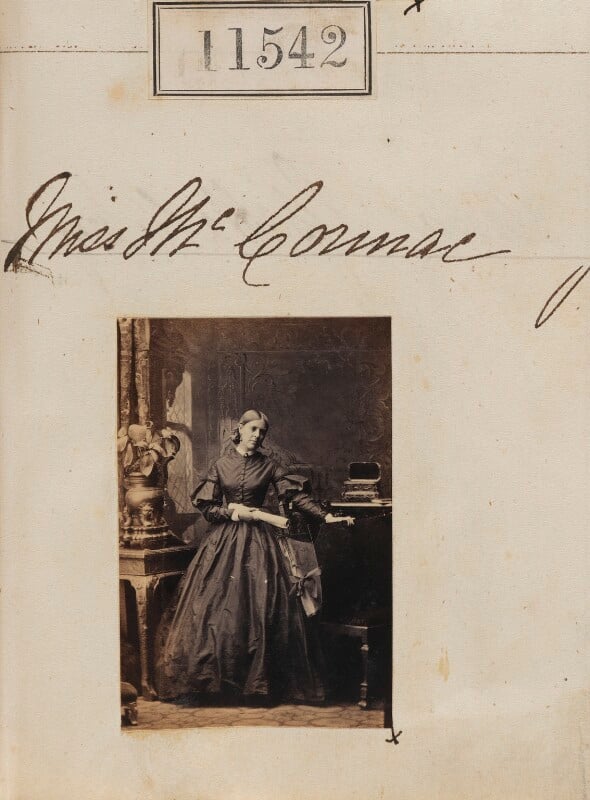 11542
Miss Mc Cormac